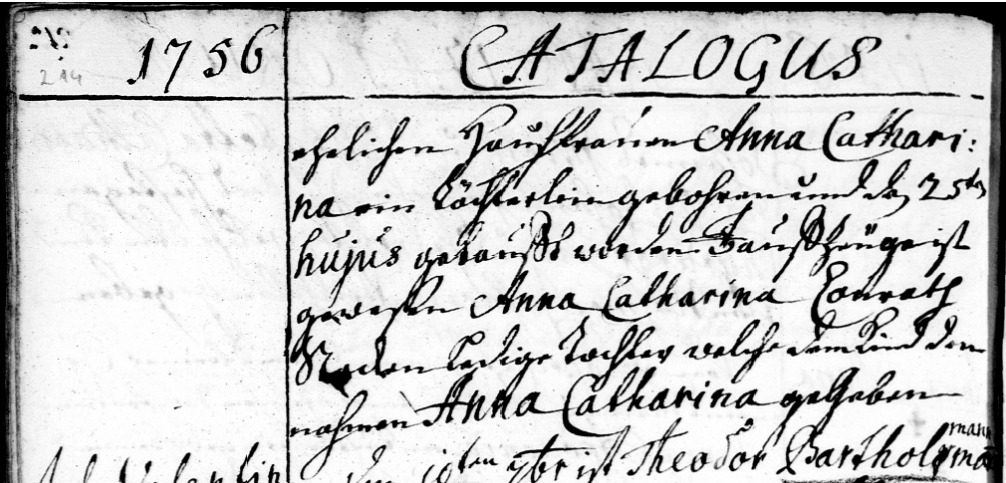 214
1756 CATALOGUS
ehelichen Haußfrauen Anna Cathari:
na ein Töchterlein gebohren und den 25ten
hujus getaufft worden Tauffzeuge ist
gewesen Anna Catharina Conrath
ledige Tochter welche dem Kind den
nahmen Anna Catharina gegeben
ten 7br ist Theodor Bartholomä
mann